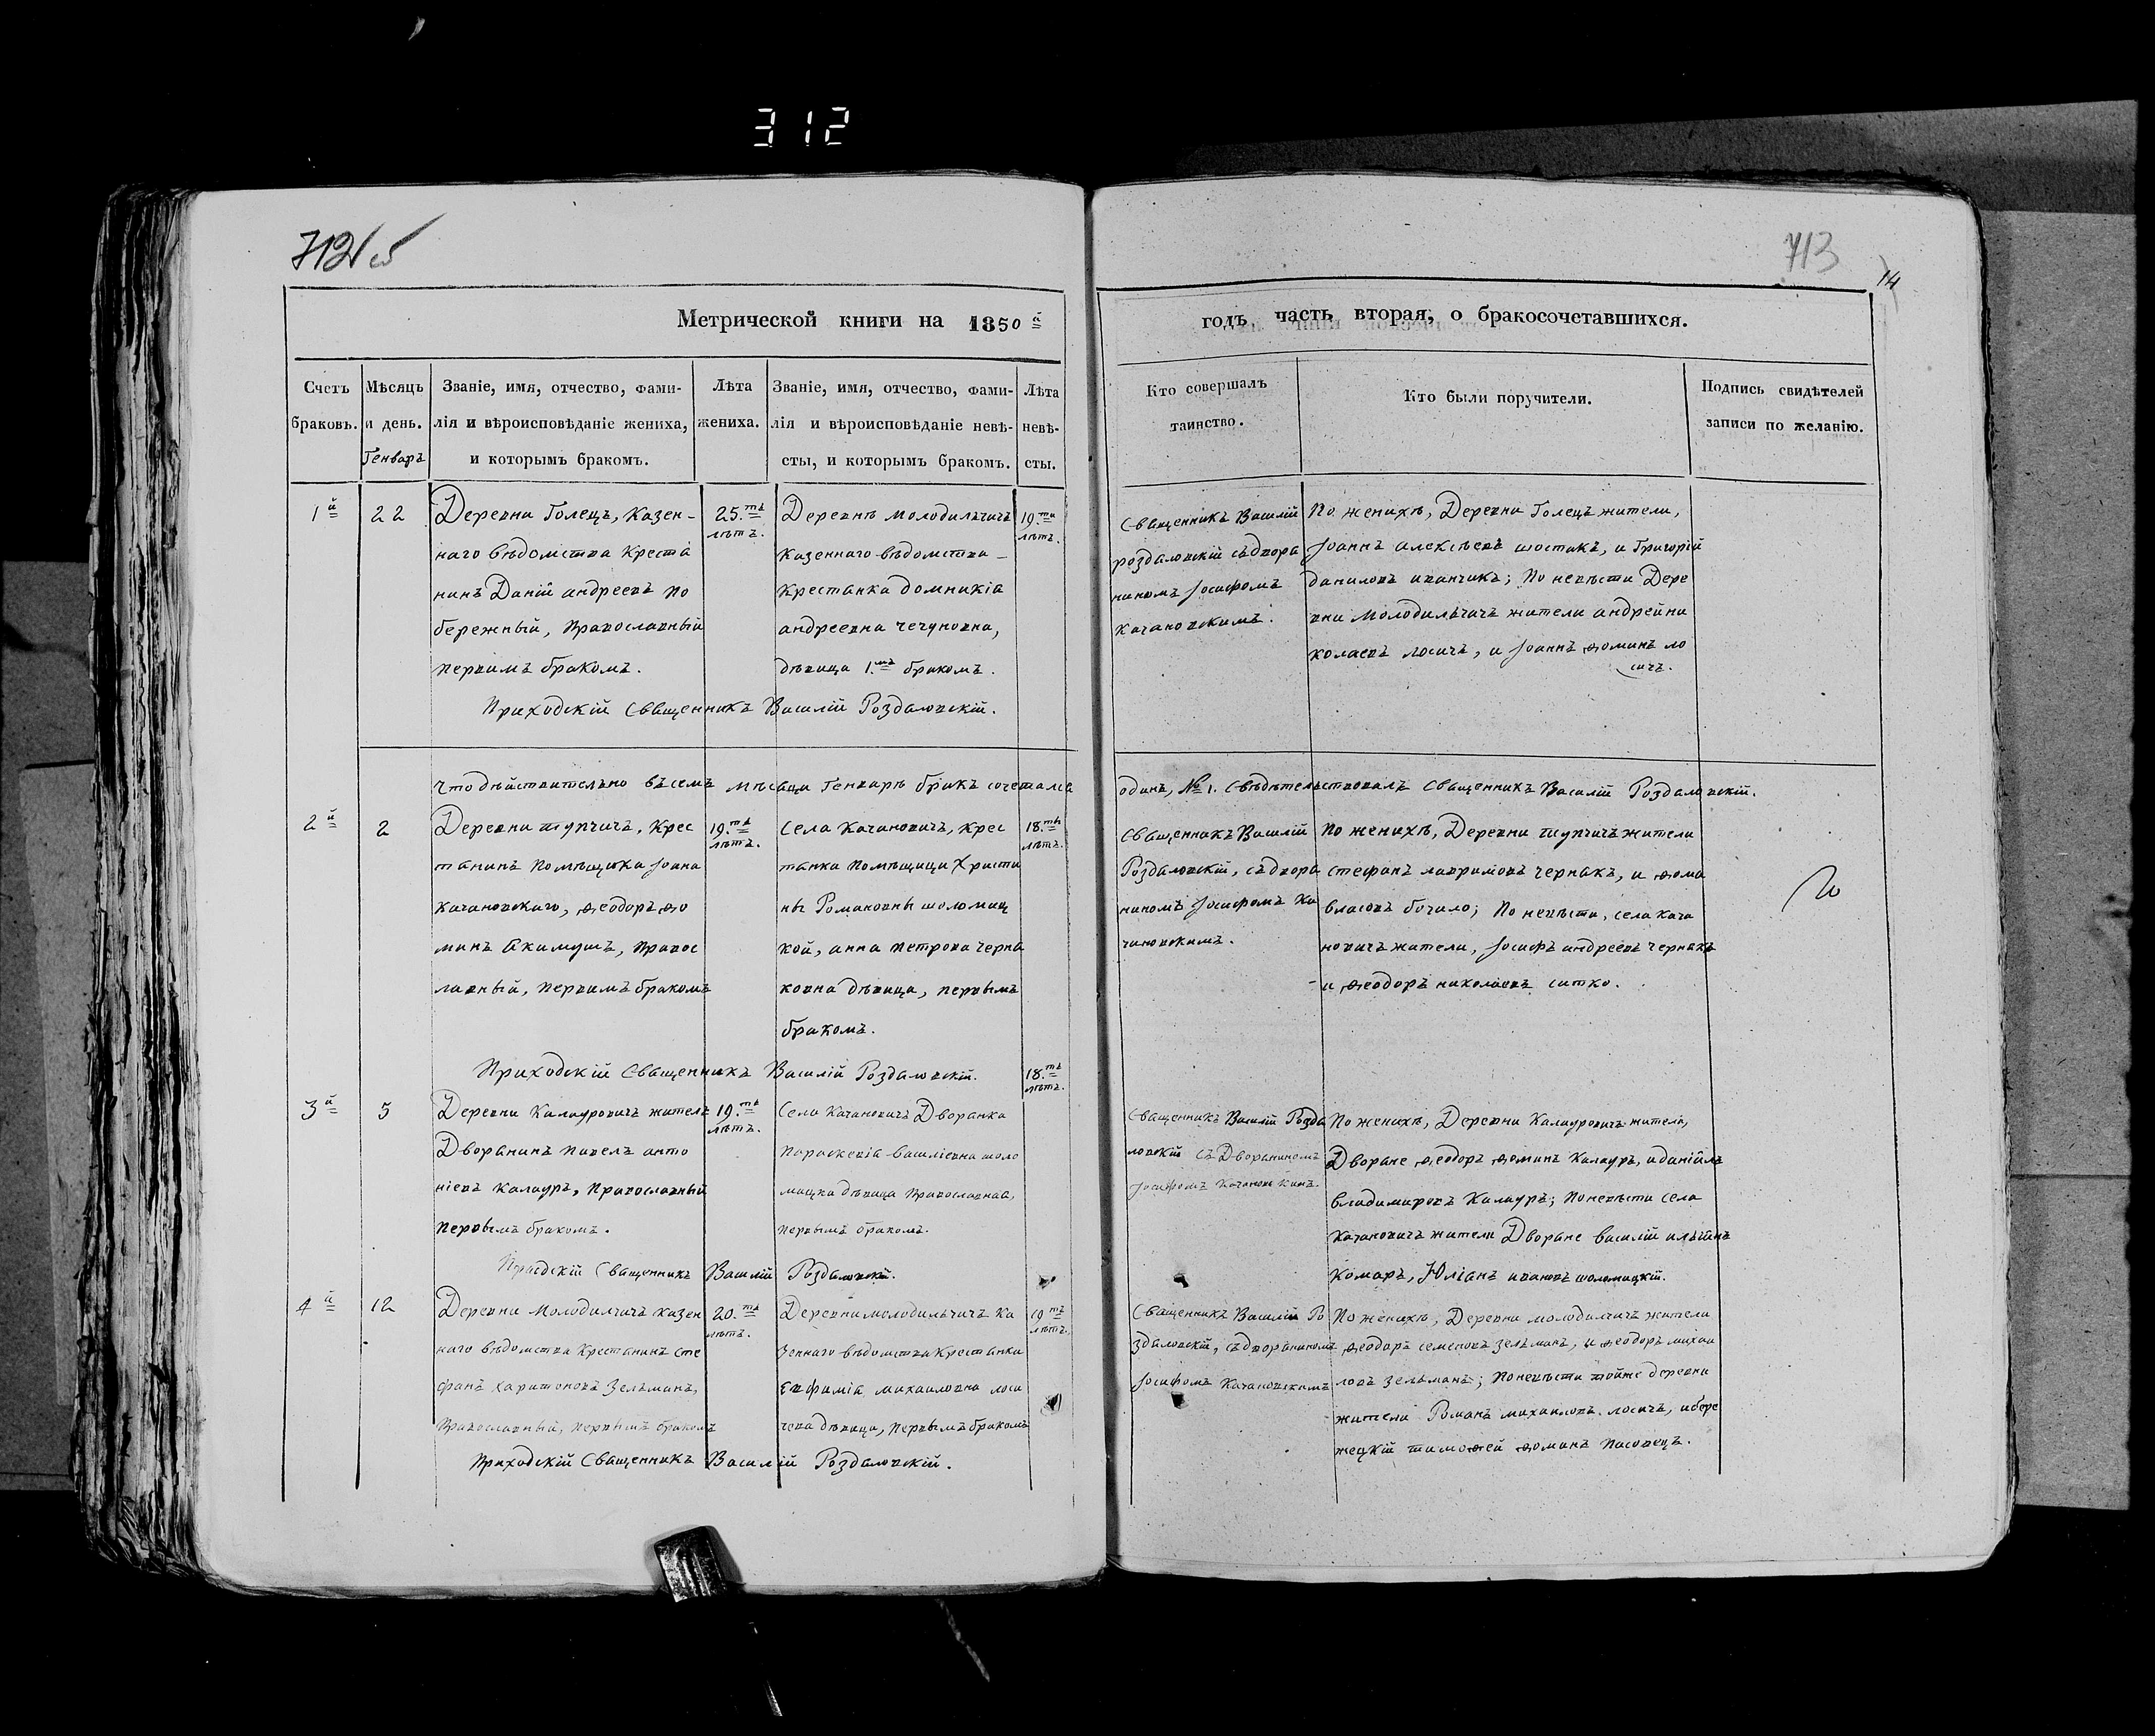 312
712 об
713
14
Метрической книги на 1850й
годъ, часть вторая, о бракосочетавшихся.
Счетъ браковъ.
Мѣсяцъ и день.
Генварь
Званіе, имя, отчество, фами-
лія и вѣроисповѣданіе жениха,
и которымъ бракомъ.
Лѣта
жениха.
Званіе, имя, отчество, фами-
лія и вѣроисповѣданіе невѣ-
сты, и которымъ бракомъ.
Лѣта
невѣ-
сты.
Кто совершалъ
таинство.
Кто были поручители.
Подпись свидѣтелей
записи по желанію.
1й
22
Деревни Голецъ, Казен-
наго вѣдомства Крестя
нинъ Даніил андреевъ по
бережный, православный
первимъ бракомъ.
25.ть
лѣтъ.
Деревнѣ Молодильчичъ
казеннаго вѣдомства
Крестянка домникія
андреевна чечуновна,
дѣвица 1.мъ бракомъ.
19.ти
лѣтъ.
Священникъ Василій
роздаловскій съ двора
ниномъ Іосифомъ
Качановскимъ.
По женихѣ, Деревни Голецъ жители,
Іоаннъ алексѣевъ шостикъ, и Григорій
даниловъ иванчикъ; По невѣсти Дере
вни Молодильчичъ жители андрей ни
колаевъ лосичъ, и Іоаннъ ѳоминъ ло
сичъ.
Приходскій Священникъ Василій Роздаловскій.
Что дѣйствительно въ семъ мѣсяци Генварѣ бракъ сочетался
одинъ, № 1. Свѣдѣтельствовалъ Священникъ Василій Роздаловскій.
2й
2
Деревни тупчичъ, Крес
тянинъ Помѣщика Іоана
Качановскаго, ѳеодоръ ѳо
минъ Акимушъ, правос
лавный, первимъ бракомъ
19.ть
лѣтъ.
Села Качановичъ, Крес
тянка Помѣщици Христи
ны Романовны шоломиц
кой, анна петрова черня
ковна дѣвица, первымъ
бракомъ.
18.ть
лѣтъ.
Священникъ Василій
Роздаловскій, съ двора
ниномъ Іосифомъ Ка
чановскимъ.
По женихѣ, Деревни тупчичъ жители
стефанъ лавримовъ чернякъ, и ѳома
власовъ бочило; По невѣсти, села Кача
новичъ жители, Іосифъ андреевъ чернякъ
и ѳеодоръ николаевъ ситко.
Приходскій Священникъ Василій Роздаловскій.
3й
5
Деревни Калауровичъ жителъ
Дворянинъ павелъ анто
ніевъ Калауръ, Православный
первымъ бракомъ.
19.ть
лѣтъ.
Села Качановичъ Дворянка
Параскевія василіевна шоло
мицка дѣвица православная,
первымъ бракомъ.
18.ть
лѣтъ.
Священникъ Василій Розда
ловскій съ Дворяниномъ
Іосифомъ Качановским.
По женихѣ, Деревни Калауровичъ жители,
Дворяне ѳеодоръ ѳоминъ Калауръ, и даніилъ
владимировъ Калауръ; По невѣсти села
Качановичъ жители Дворяне василій ильинъ
Комаръ, Юліанъ ивановъ шоломицкій.
Приходскій Священникъ Василій Роздаловскій.
4й
12
Деревни Молодилчичъ казен
наго вѣдомства Крестянинъ сте
фанъ харитоновъ Зелъманъ,
Православный, первымъ бракомъ
20.ть
лѣтъ.
Деревни молодильчичъ ка
зеннаго вѣдомства Крестянка
Евфимія михаиловна лоси
чева дѣвица, первымъ бракомъ
19ть
лѣтъ.
Священникъ Василій Ро
здаловскій, съ дворяниномъ
Іосифомъ Качановскимъ
По женихѣ, Деревни молодилчичъ жители
ѳеодоръ семеновъ зелъманъ, и ѳеодоръ михаи
ловъ зельманъ; По невѣсти тойже деревни
жители Романъ михаиловъ лосичъ, и бере
жецкій тимоѳей ѳоминъ пасовецъ.
Приходскій Священникъ Василій Роздаловскій.